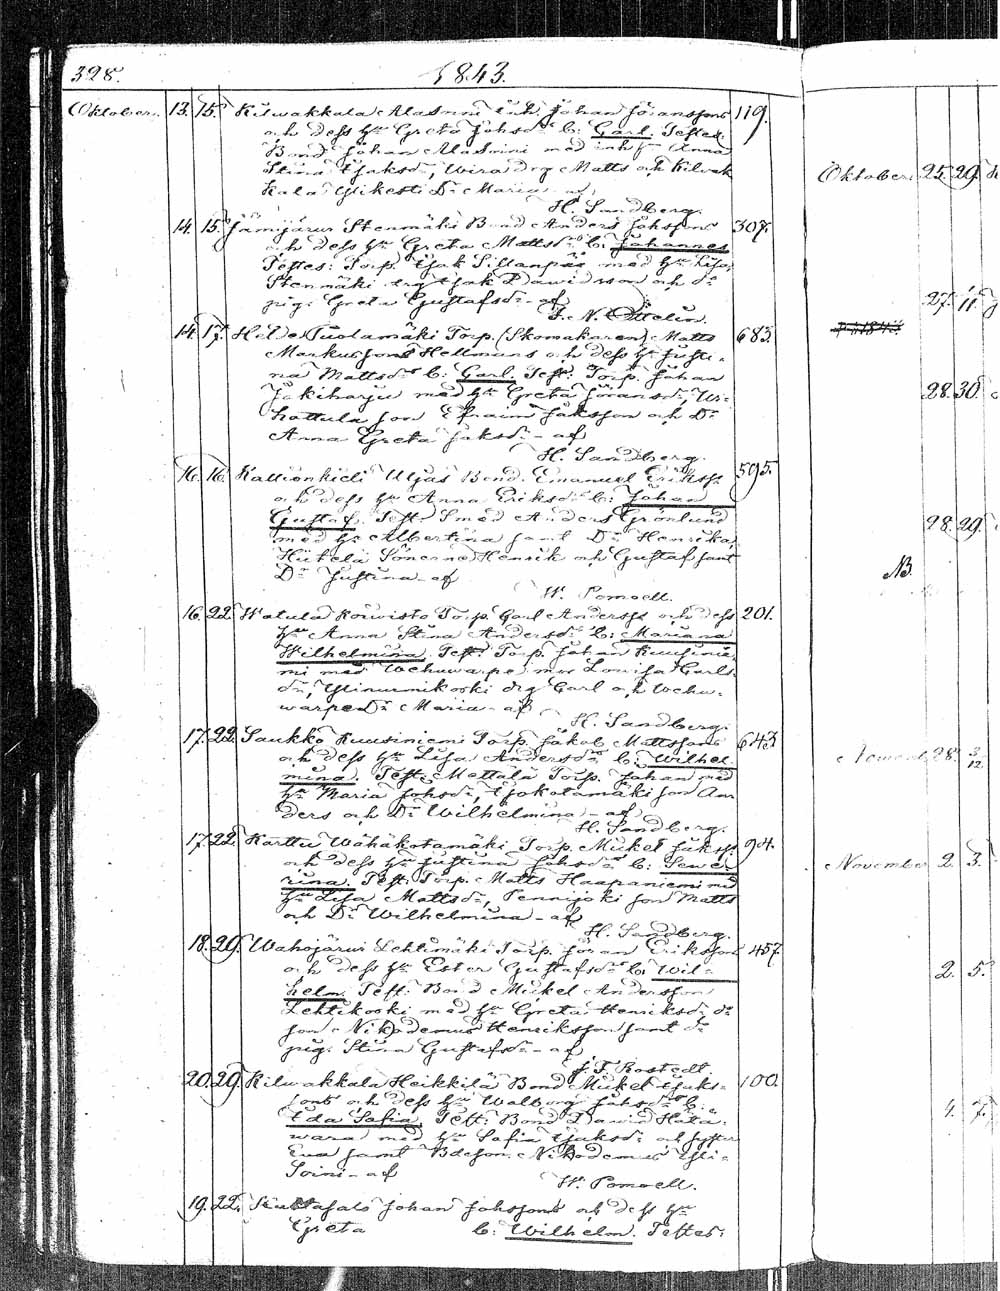 328.
1843.
Oktober. 13. 15. Kilwakkala Alasoini inh. Johan Jöransson 119.
och dess hu Greta Johsdr b: Carl. Testes
Bond Johan Alasoini med inhs Anna
Stina Isaksdr, Wira drg Matts och Kilwak
kala Ylikesti Dr Maria - af
H. Sandberg.
14. 15. Jämijärwi Stenmäki Bond Anders Jakssons 307.
och dess hu Greta Mattsdr b: Johannes
Testes: Torp. Isak Sillanpää med hu Lisa,
Stenmäki drg Isak Dawidsson och dr
pig. Greta Gustafsdr - af
F. N. Ottelin.
14. 17. Tuolamäki Torp. (Skomakaren) Matts 683.
Markussons Hellmans och dess hu Justi-
na Mattsdr b: Carl. Test: Torp. Johan
med hu Greta Jöransdr, Wi-
hattula son Efraim Jaksson och Dr
Anna Greta Jaksdr - af
H. Sandberg.
16. 16. Kallionkieli Uljas Bond. Emanuel Erikss. 595.
och dess hu Anna Eriksdr b: Johan
Gustaf. Test: Smed Anders Grönlund
med hu Albertina samt Dr Henrika,
Sönerna Henrik och Gustaf samt
Dr Justina af
W. Pomoell.
16. 22. Watula Koiwisto Torp. Carl Anderss och dess 201.
hu Anna Stina Andersdr b: Mariana
Wilhelmina. Test: Torp. Johan Kuusinie-
mi med Wehuwarpe mor Lowisa Carls
dr, Ylinurmikoski drg Carl och Wehu-
warpe Dr Maria - af
H. Sandberg.
17. 22. Saukko Kuusiniemi Torp. Jakob Mattssons 643.
och dess hu Lisa Andersdr b: Wilhel-
mina. Test: Mettälä Torp. Johan med
hu Maria Johsdr, Isokotamäki son An
ders och Dr Wilhelmina - af
H. Sandberg.
17. 22. Karttu Wähäkotamäki Torp. Mickel Jakss 904.
och dess hu Justina Johsdr b: Seweri
rina. Test: Torp. Matts Haapaniemi med
hu Lisa Mattsdr, Pennijoki son Matts
och Dr Wilhelmina - af
H. Sandberg.
18. 29. Wahojärwi Lehtimäki Torp. Jöran Eriksson 457.
och dess hu Ester Gustafsdr b: Wil-
helm. Test: Bond Mickel Andersson
Lehtikoski med hu Greta Henriksdr dr
son Nikodemus Henriksson samt dr
pig. Stina Gustafsdr - af
J. F. Rostedt.
20. 29. Kilwakkala Heikkilä Bond Mickel Isaks- 100.
sons och dess hu Walborg Jaksdr b:
Eda Sofia. Test: Bond Dawid Hata-
wara med hu Sofia Isaksdr och syster
Ewa samt Bdeson Nikodemus Yli-
Soini - af
W. Pomoell.
19. 22. Johan Johssons och dess hu
Greta b: Wilhelm. Testes:
Oktober. 25. 29.
27. 11.
28. 30.
28. 29.
NB.
28. 3/12.
November 2. 3.
2. 5.
4. 7.